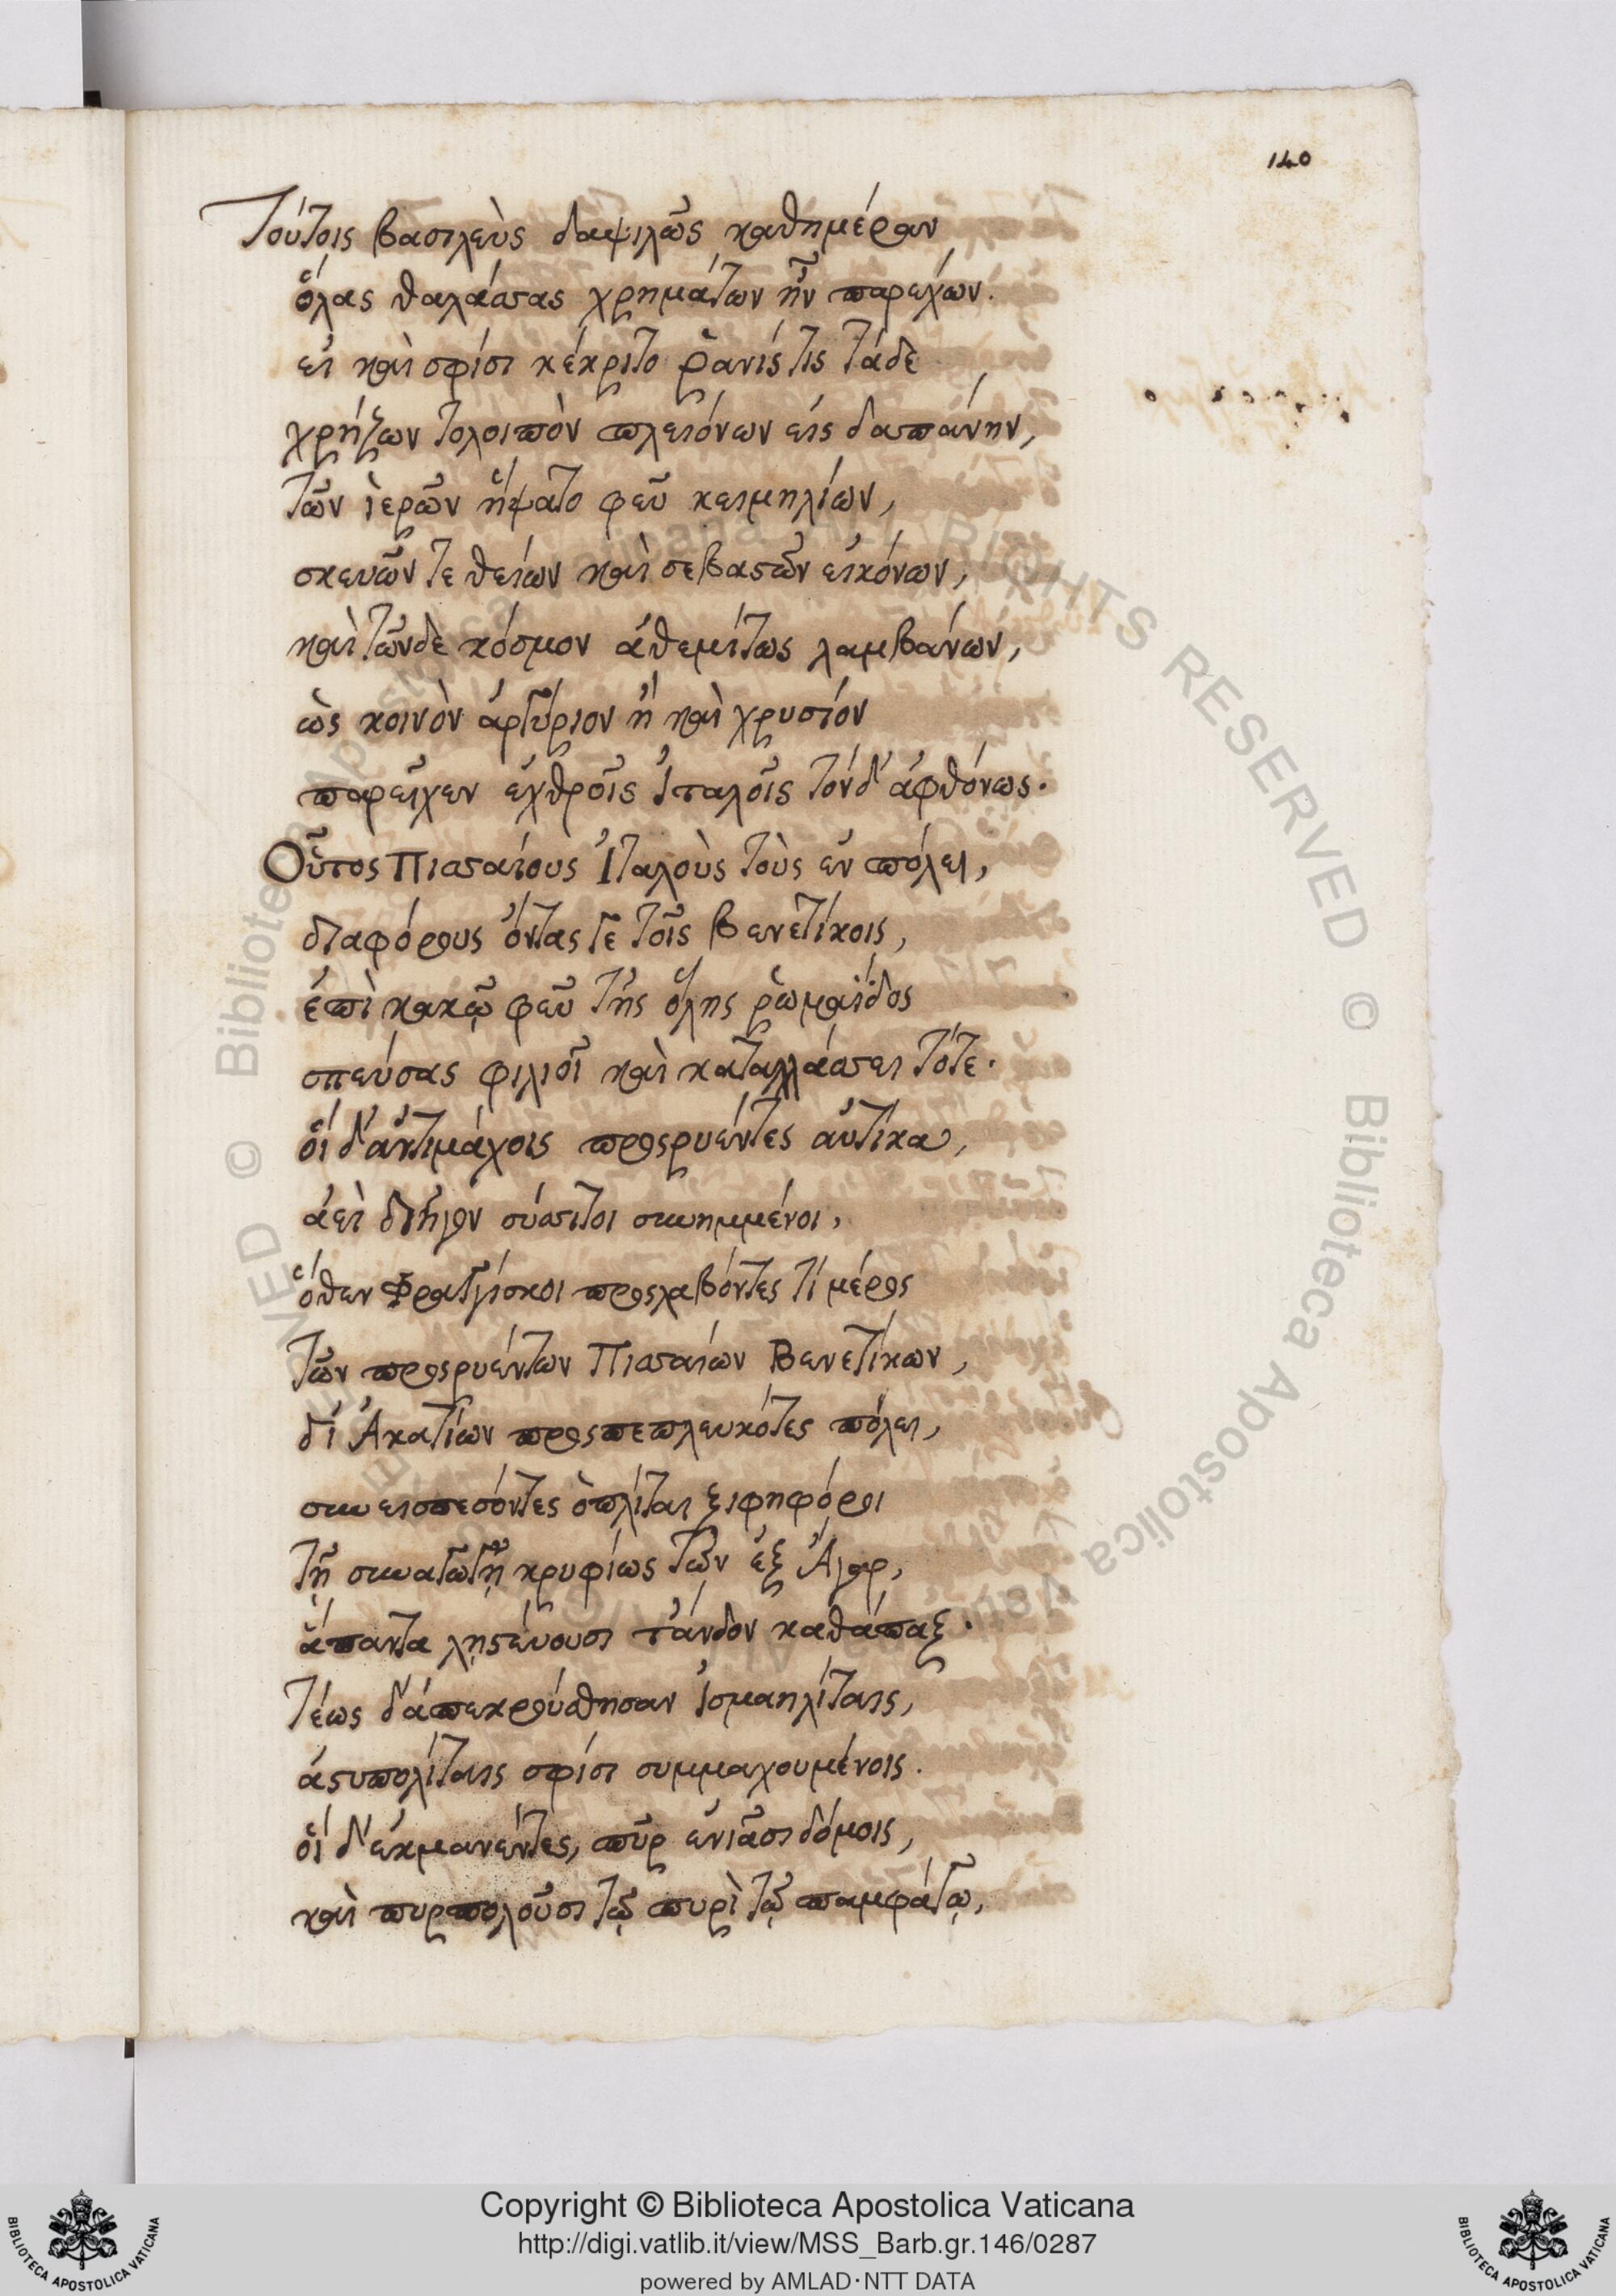 140
Τούτοις βασιλεὺς δαψιλῶς καθημέραν
ὅλας θαλάσσας χρημάτων ἦν παρεχών.
εἰ καὶ σφίσι κέκριτο ῥανίς τις τάδε
χρήζων τολοιπὸν πλειόνων εἰς δαπάνην,
τῶν ἱερῶν ἥψατο φεῦ κειμηλίων,
σκευῶν τε θείων καὶ σεβαστῶν εἰκόνων,
καὶ τῶνδε κόσμον ἀθεμίτως λαμβάνων,
ὡς κοινὸν ἀργύριον ἢ καὶ χρυσίον
παρεῖχεν ἐχθροῖς Ἰταλοῖς τόνδ' ἀφθόνως.
Οὗτος Πισσαίους Ἰταλοὺς τοὺς ἐν πόλει,
διαφόρους ὄντας γε τοῖς Βενετίκοις,
ἐπὶ κακῷ φεῦ τῆς ὅλης ῥωμαΐδος
σπεύσας φιλιοῖ καὶ καταλλάσσει τότε.
οἱ δ' ἀντιμάχοις προσρυέντες αὐτίκα,
ἀεὶ διῆγον σύσσιτοι συνημμένοι,
ὅθεν Φραγγίσκοι προσλαβόντες τί μέρος
τῶν προσρυέντων Πισσαίων Βενετίκων,
δι' Ἀκατίων προσπεπλευκότες πόλει,
συνεισπεσόντες ὁπλίται ξιφηφόροι
τῇ συναγωγῇ κρυφίως τῶν ἐξ Ἄγαρ,
ἅπαντα λῃστεύουσι τἄνδον καθάπαξ.
τέως δ' ἀπεκρούσθησαν Ἰσμαηλίταις,
ἀστυπολίταις σφίσι συμμαχουμένοις.
οἱ δ' ἐκμανέντες, πῦρ ἐνιᾶσι δόμοις,
καὶ πυρπολοῦσι τῷ πυρὶ τῷ παμφάγῳ,
Copyright © Biblioteca Apostolica Vaticana
http://digi.vatlib.it/view/MSS_Barb.gr.146/0287
powered by AMLAD·NTT DATA